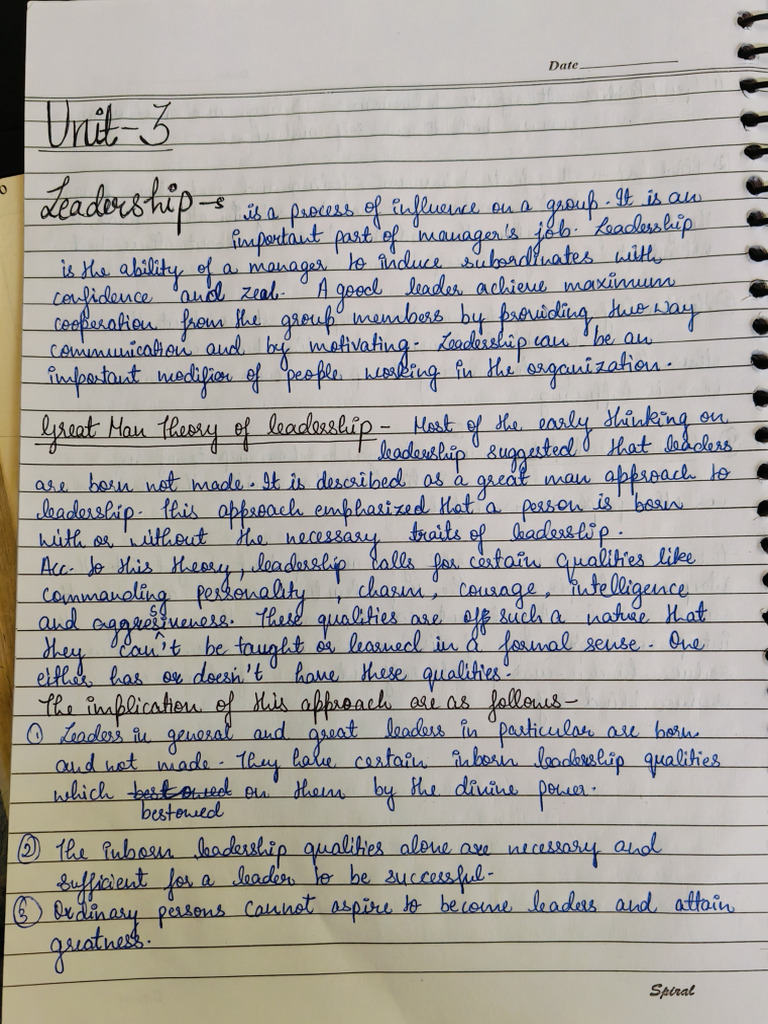 Date
Unit-3
Leadership-s is a process of influence on a group. It is an
important part of manager's job. Leadership
is the ability of a manager to induce subordinates with
confidence and zeal. A good leader achieve maximum
cooperation from the group members by providing two way
communication and by motivating. Leadership can be an
important modifier of people working in the organization.
Great Man Theory of leadership - Most of the early thinking on
leadership suggested that leaders
are born not made. It is described as a great man approach to
leadership. This approach emphasized that a person is born
with or without the necessary traits of leadership.
Acc. to this theory, leadership calls for certain qualities like
commanding personality, charm, courage, intelligence
and aggressiveness. These qualities are of such a nature that
they can't be taught or learned in a formal sense. One
either has or doesn't have these qualities.
The implication of this approach are as follows-
① Leaders in general and great leaders in particular are born
and not made. They have certain inborn leadership qualities
which bestowed on them by the divine power.
bestowed
② The inborn leadership qualities alone are necessary and
sufficient for a leader to be successful.
③ Ordinary persons cannot aspire to become leaders and attain
greatness.
Spiral